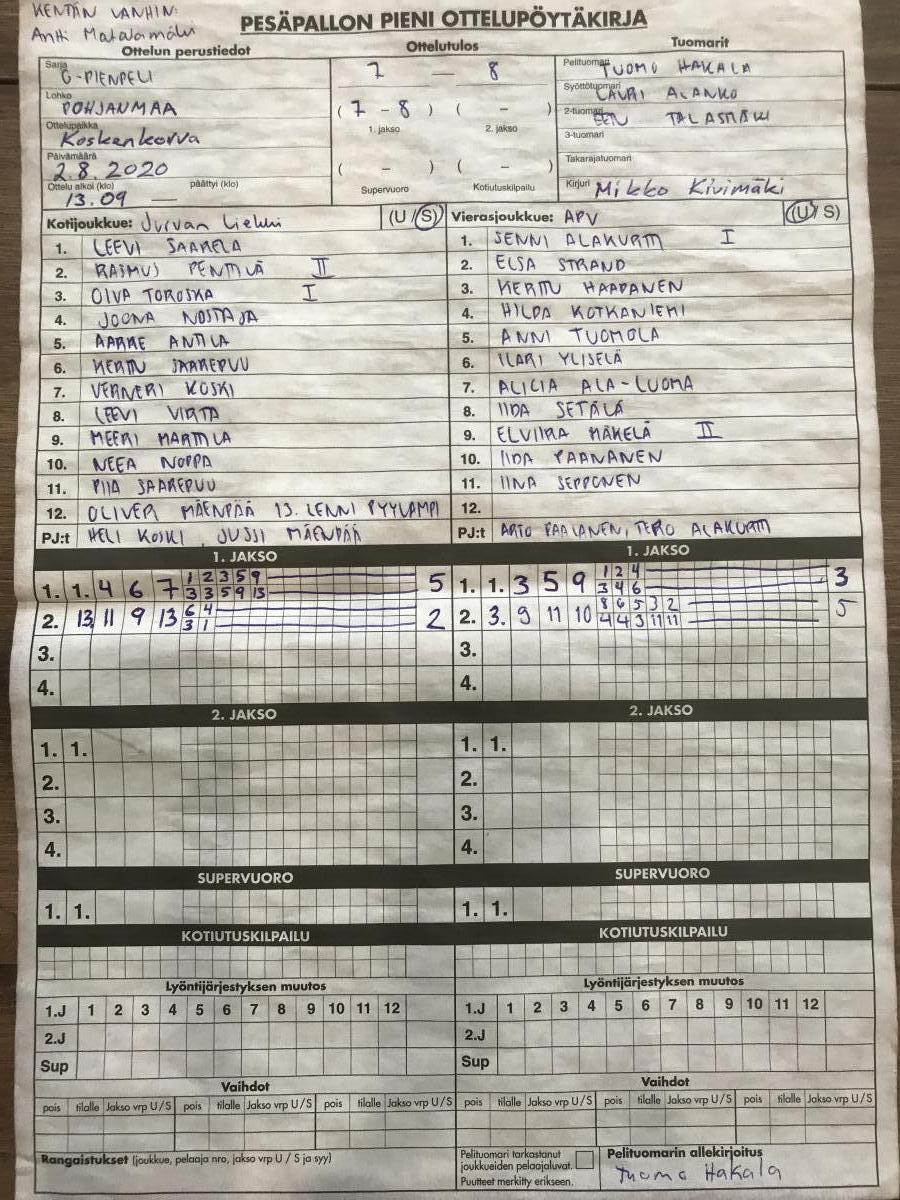 KENTÄN VANHIN:
Antti Matalamäki
PESÄPALLON PIENI OTTELUPÖYTÄKIRJA
Ottelun perustiedot
Sarja
G-PIENPELI
Lohko
POHJANMAA
Ottelupaikka
Koskenkorva
Päivämäärä
2.8.2020
Ottelu alkoi (klo) päättyi (klo)
13.09 —
Ottelutulos
7 — 8
( 7 - 8 ) ( - )
1. jakso 2. jakso
( - ) ( - )
Supervuoro Kotiutuskilpailu
Tuomarit
Pelituomari TUOMO HAKALA
Syöttötuomari LAURI ALANKO
2-tuomari EEN TALASMÄKI
3-tuomari
Takarajatuomari
Kirjuri Mikko Kivimäki
Kotijoukkue: Jurvan Liekki (U / S)
1. LEEVI SAARELA
2. RASMUS PENTTILÄ II
3. OIVA TOROSKA I
4. JOONA NOSTAJA
5. AARRE ANTILA
6. KERTTU SAAREPUU
7. VERNERI KOSKI
8. LEEVI VIRTA
9. MEERI MARTTILA
10. NEEA NOPPA
11. PIIA SAAREPUU
12. OLIVER MÄENPÄÄ 13. LENNI PYYLAMPI
PJ:t HELI KOSKI, JUSSI MÄENPÄÄ
Vierasjoukkue: APV (U/ S)
1. SENNI ALAKURTTI I
2. ELSA STRAND
3. KERTTU HAAPANEN
4. HILDA KOTKANIEMI
5. ANNI TUOMOLA
6. ILARI YLISELÄ
7. ALICIA ALA-LUOMA
8. IIDA SETÄLÄ
9. ELVIIRA MÄKELÄ II
10. IIDA PAANANEN
11. IINA SEPPONEN
12.
PJ:t ARTO PAALANEN, TERO ALAKURTTI
1. JAKSO
1. 1. 4 6 7 1 2 3 5 9 5
3 3 5 9 13
2. 13 11 9 13 6 4 2
3 1
3.
4.
1. JAKSO
1. 1. 3 5 9 1 2 4 3
3 4 6
2. 3. 9 11 10 8 6 5 3 2 5
4 4 3 11 11
3.
4.
2. JAKSO
1. 1.
2.
3.
4.
2. JAKSO
1. 1.
2.
3.
4.
SUPERVUORO
1. 1.
SUPERVUORO
1. 1.
KOTIUTUSKILPAILU
KOTIUTUSKILPAILU
Lyöntijärjestyksen muutos
1.J 1 2 3 4 5 6 7 8 9 10 11 12
2.J
Sup
Lyöntijärjestyksen muutos
1.J 1 2 3 4 5 6 7 8 9 10 11 12
2.J
Sup
Vaihdot
pois tilalle Jakso vrp U/S pois tilalle Jakso vrp U/S pois tilalle Jakso vrp U/S
Vaihdot
pois tilalle Jakso vrp U/S pois tilalle Jakso vrp U/S pois tilalle Jakso vrp U/S
Rangaistukset (joukkue, pelaaja nro, jakso vrp U / S ja syy)
Pelituomari tarkastanut
joukkueiden pelaajaluvat.
Puutteet merkitty erikseen.
Pelituomarin allekirjoitus
Tuomo Hakala